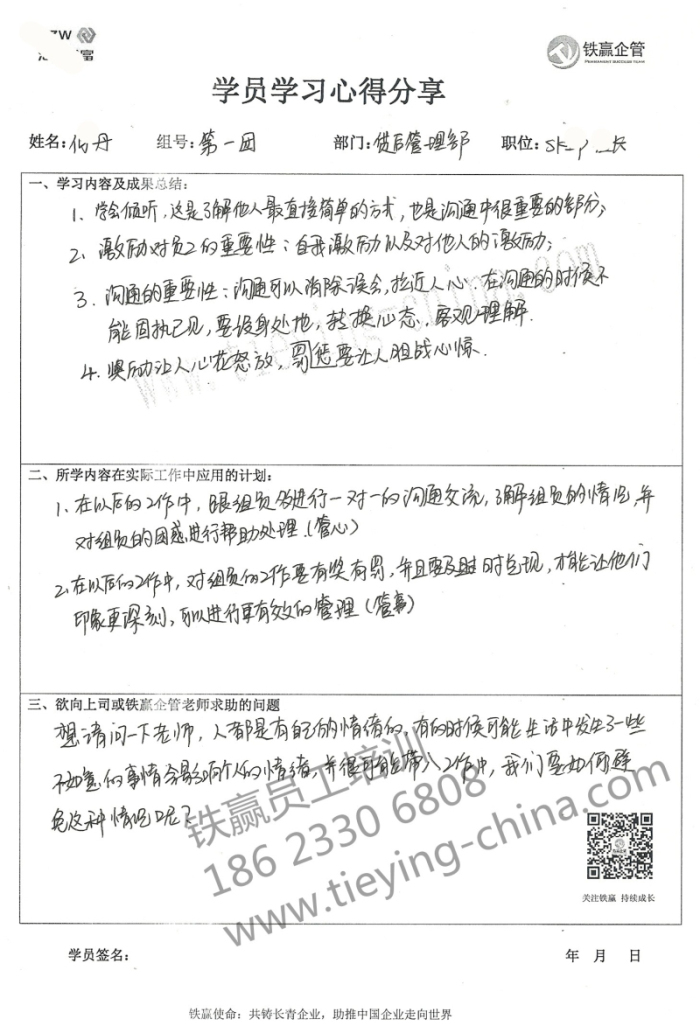 ZW
富
铁赢企管
PERMANENT SUCCESS TEAM
学员学习心得分享
姓名: 丹 组号: 第一团 部门: 贷后管理部 职位: 长
一、学习内容及成果总结:
1、学会倾听,这是了解他人最直接简单的方式,也是沟通中很重要的部分;
2、激励对员工的重要性:自我激励以及对他人的激励;
3、沟通的重要性:沟通可以消除误会,拉近人心.在沟通的时候不
能固执己见,要设身处地,转换心态,客观理解.
4、奖励让人心花怒放,罚惩要让人胆战心惊.
二、所学内容在实际工作中应用的计划:
1、在以后的工作中,跟组员多进行一对一的沟通交流,了解组员的情况,并
对组员的困惑进行帮助处理.(管心)
2、在以后的工作中,对组员的工作要有奖有罚,并且要及时兑现,才能让他们
印象更深刻,可以进行更有效的管理(管事)
三、欲向上司或铁赢企管老师求助的问题
想请问一下老师,人都是有自己的情绪的,有的时候可能生活中发生了一些
不如意的事情会影响个人的情绪,并很可能带入工作中,我们要如何避
免这种情况呢?
铁赢员工培训
186 2330 6808
www.tieying-china.com
关注铁赢 持续成长
学员签名: 年 月 日
铁赢使命:共铸长青企业,助推中国企业走向世界